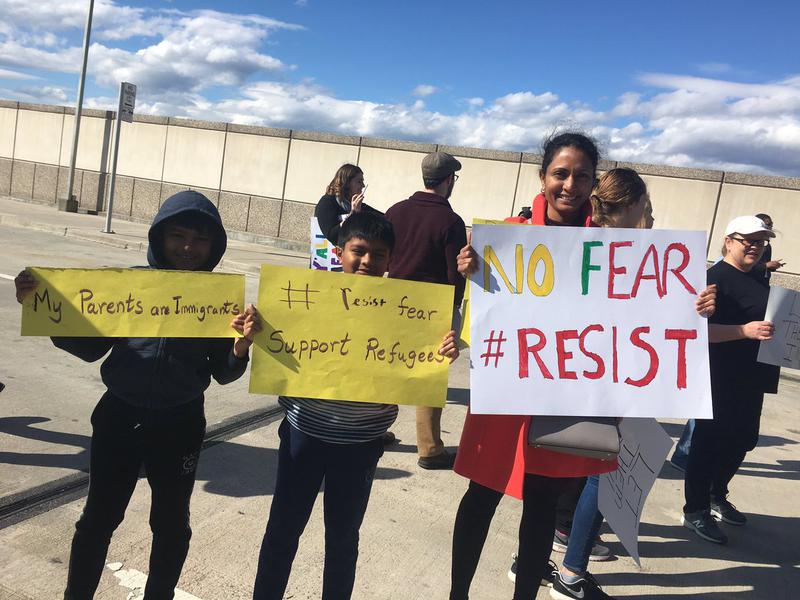 My Parents are Immigrants
# resist fear
Support Refugees
NO FEAR
#RESIST